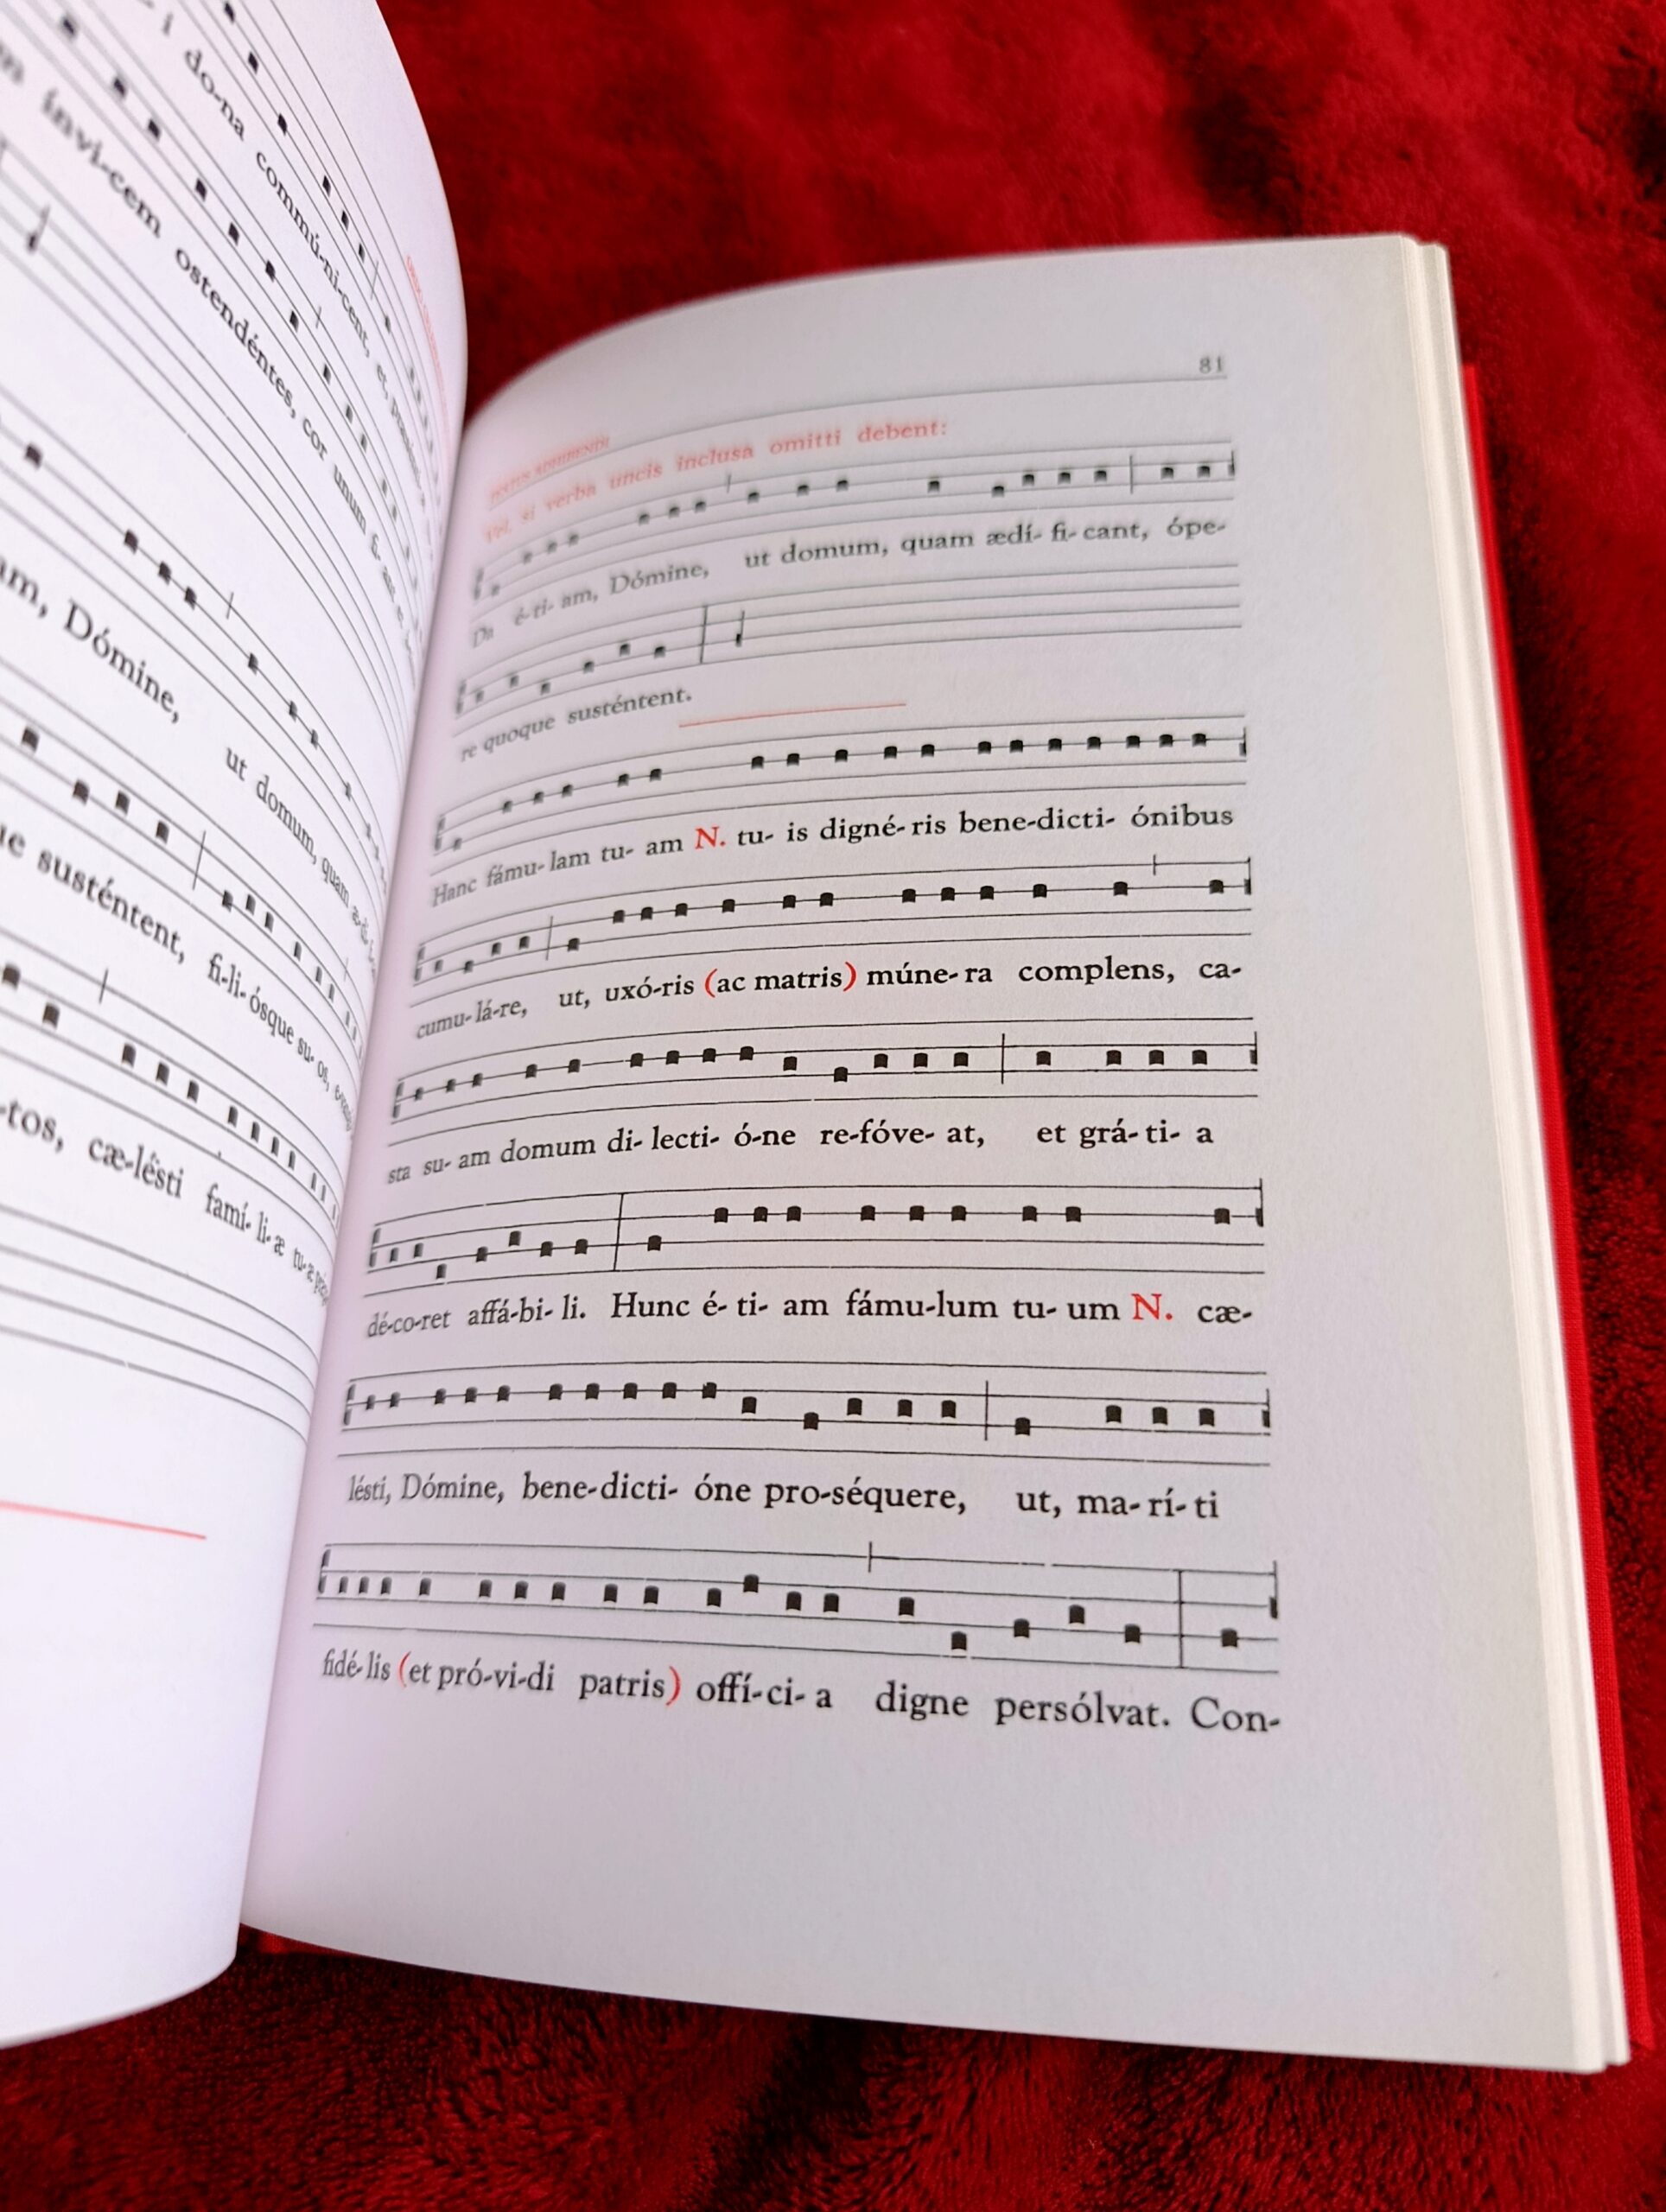 i do-na commú-ni-cent, et,
invi-cem ostendéntes, cor unum
am, Dómine, ut domum, quam
susténtent, fi-li-ósque su- os,
-tos, cæ-lésti famí- li- æ tu- æ
81
Vel, si verba uncis inclusa omitti debent:
Da é-ti- am, Dómine, ut domum, quam ædí- fi- cant, ópe-
re quoque susténtent.
Hanc fámu- lam tu- am N. tu- is digné- ris bene-dicti- ónibus
cumu- lá-re, ut, uxó-ris (ac matris) múne- ra complens, ca-
sta su- am domum di- lecti- ó-ne re-fóve- at, et grá- ti- a
dé-co-ret affá-bi- li. Hunc é- ti- am fámu-lum tu- um N. cæ-
lésti, Dómine, bene-dicti- óne pro-séquere, ut, ma- rí- ti
fidé- lis (et pró-vi-di patris) offí-ci- a digne persólvat. Con-